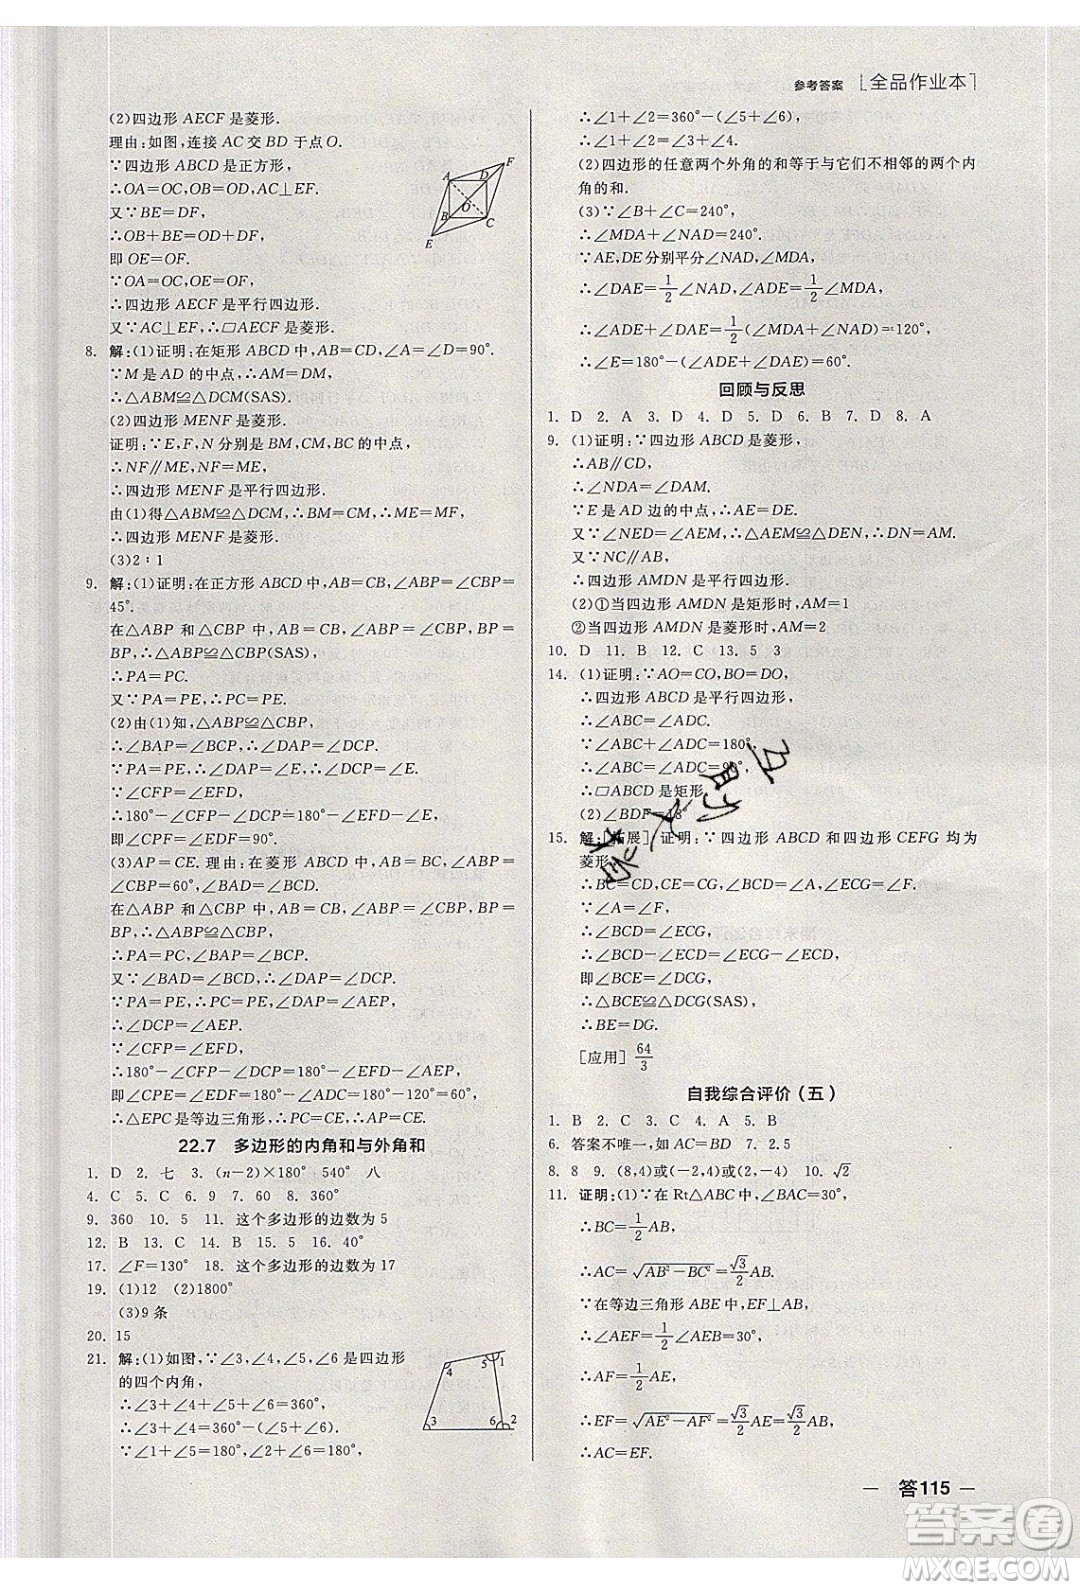 参考答案 [全品作业本]
(2)四边形 AECF 是菱形.
理由:如图,连接 AC 交 BD 于点 O.
∵四边形 ABCD 是正方形,
∴OA=OC,OB=OD,AC⊥EF.
又∵BE=DF,
∴OB+BE=OD+DF,
即 OE=OF.
∵OA=OC,OE=OF,
∴四边形 AECF 是平行四边形.
又∵AC⊥EF,∴□AECF 是菱形.
A D F O B C E
8. 解:(1)证明:在矩形 ABCD 中,∠A=∠D=90°.
∵M 是 AD 的中点,∴AM=DM,
∴△ABM≌△DCM(SAS).
(2)四边形 MENF 是菱形.
证明:∵E,F,N 分别是 BM,CM,BC 的中点,
∴NF∥ME,NF=ME,
∴四边形 MENF 是平行四边形.
由(1)得△ABM≌△DCM,∴BM=CM,∴MF=ME,
∴四边形 MENF 是菱形.
(3)2∶1
9. 解:(1)证明:在正方形 ABCD 中,AB=CB,∠ABP=∠CBP=
45°.
在△ABP 和△CBP 中,AB=CB,∠ABP=∠CBP,BP=
BP,∴△ABP≌△CBP(SAS),
∴PA=PC.
又∵PA=PE,∴PC=PE.
(2)由(1)知,△ABP≌△CBP,
∴∠BAP=∠BCP,∴∠DAP=∠DCP.
∵PA=PE,∴∠DAP=∠E,∴∠DCP=∠E.
∵∠CFP=∠EFD,
∴180°-∠CFP-∠DCP=180°-∠EFD-∠E,
即∠CPF=∠EDF=90°.
(3)AP=CE. 理由:在菱形 ABCD 中,AB=BC,∠ABP=
∠CBP=60°,∠BAD=∠BCD=120°.
在△ABP 和△CBP 中,AB=CB,∠ABP=∠CBP,BP=BP,
∴△ABP≌△CBP(SAS),
∴PA=PC,∠BAP=∠BCP.
又∵∠BAD=∠BCD,∴∠DAP=∠DCP.
∵PA=PE,∴PC=PE,∠DAP=∠AEP,
∴∠DCP=∠AEP.
∵∠CFP=∠EFD,
∴180°-∠CFP-∠DCP=180°-∠EFD-∠AEP,
即∠CPE=∠EDF=180°-∠ADC=180°-120°=60°,
∴△EPC 是等边三角形,∴PC=CE,∴AP=CE.
22.7 多边形的内角和与外角和
1. D 2. 七 3. (n-2)×180° 540° 八
4. C 5. C 6. 9 7. 60 8. 360°
9. 360 10. 5 11. 这个多边形的边数为 5
12. B 13. C 14. B 15. 5 16. 40°
17. ∠F=130° 18. 这个多边形的边数为 17
19. (1)12 (2)1800°
(3)9 条
20. 15
21. 解:(1)如图,∵∠3,∠4,∠5,∠6 是四边形
的四个内角,
∴∠3+∠4+∠5+∠6=360°,
∴∠3+∠4=360°-(∠5+∠6).
∵∠1+∠5=180°,∠2+∠6=180°,
4 5 1 3 6 2
∴∠1+∠2=360°-(∠5+∠6),
∴∠1+∠2=∠3+∠4.
(2)四边形的任意两个外角的和等于与它们不相邻的两个内
角的和.
(3)∵∠B+∠C=240°,
∴∠MDA+∠NAD=240°.
∵AE,DE 分别平分∠NAD,∠MDA,
∴∠DAE=1/2∠NAD,∠ADE=1/2∠MDA,
∴∠ADE+∠DAE=1/2(∠MDA+∠NAD)=120°,
∴∠E=180°-(∠ADE+∠DAE)=60°.
回顾与反思
1. D 2. A 3. D 4. D 5. D 6. B 7. D 8. A
9. (1)证明:∵四边形 ABCD 是菱形,
∴AB∥CD,
∴∠NDA=∠DAM.
∵E 是 AD 边的中点,∴AE=DE.
又∵∠NED=∠AEM,∴△AEM≌△DEN,∴ND=AM.
又∵NC∥AM,
∴四边形 AMDN 是平行四边形.
(2)①当四边形 AMDN 是矩形时,AM=1
②当四边形 AMDN 是菱形时,AM=2
10. D 11. B 12. C 13. 5 3
14. (1)证明:∵AO=CO,BO=DO,
∴四边形 ABCD 是平行四边形,
∴∠ABC=∠ADC.
∵∠ABC+∠ADC=180°,
∴∠ABC=∠ADC=90°,
∴□ABCD 是矩形.
(2)∠BDF=18°
15. 解:[拓展] 证明:∵四边形 ABCD 和四边形 CEFG 均为
菱形,
∴BC=CD,CE=CG,∠BCD=∠A,∠ECG=∠F.
∵∠A=∠F,
∴∠BCD=∠ECG,
∴∠BCD-∠ECD=∠ECG-∠ECD,
即∠BCE=∠DCG,
∴△BCE≌△DCG(SAS),
∴BE=DG.
[应用] 64/3
自我综合评价(五)
1. B 2. C 3. C 4. A 5. B
6. 答案不唯一,如 AC=BD 7. 2.5
8. 8 9. (8,4)或(-2,4)或(-3,4) 10. √2
11. 证明:(1)∵在 Rt△ABC 中,∠BAC=30°,
∴BC=1/2AB,
∴AC=√(AB²-BC²)=√3/2AB.
∵在等边三角形 ABE 中,EF⊥AB,
∴∠AEF=1/2∠AEB=30°,
∴AF=1/2AE,
∴EF=√(AE²-AF²)=√3/2AE=√3/2AB,
∴AC=EF.
— 答115 —
答案圈
MXQE.COM